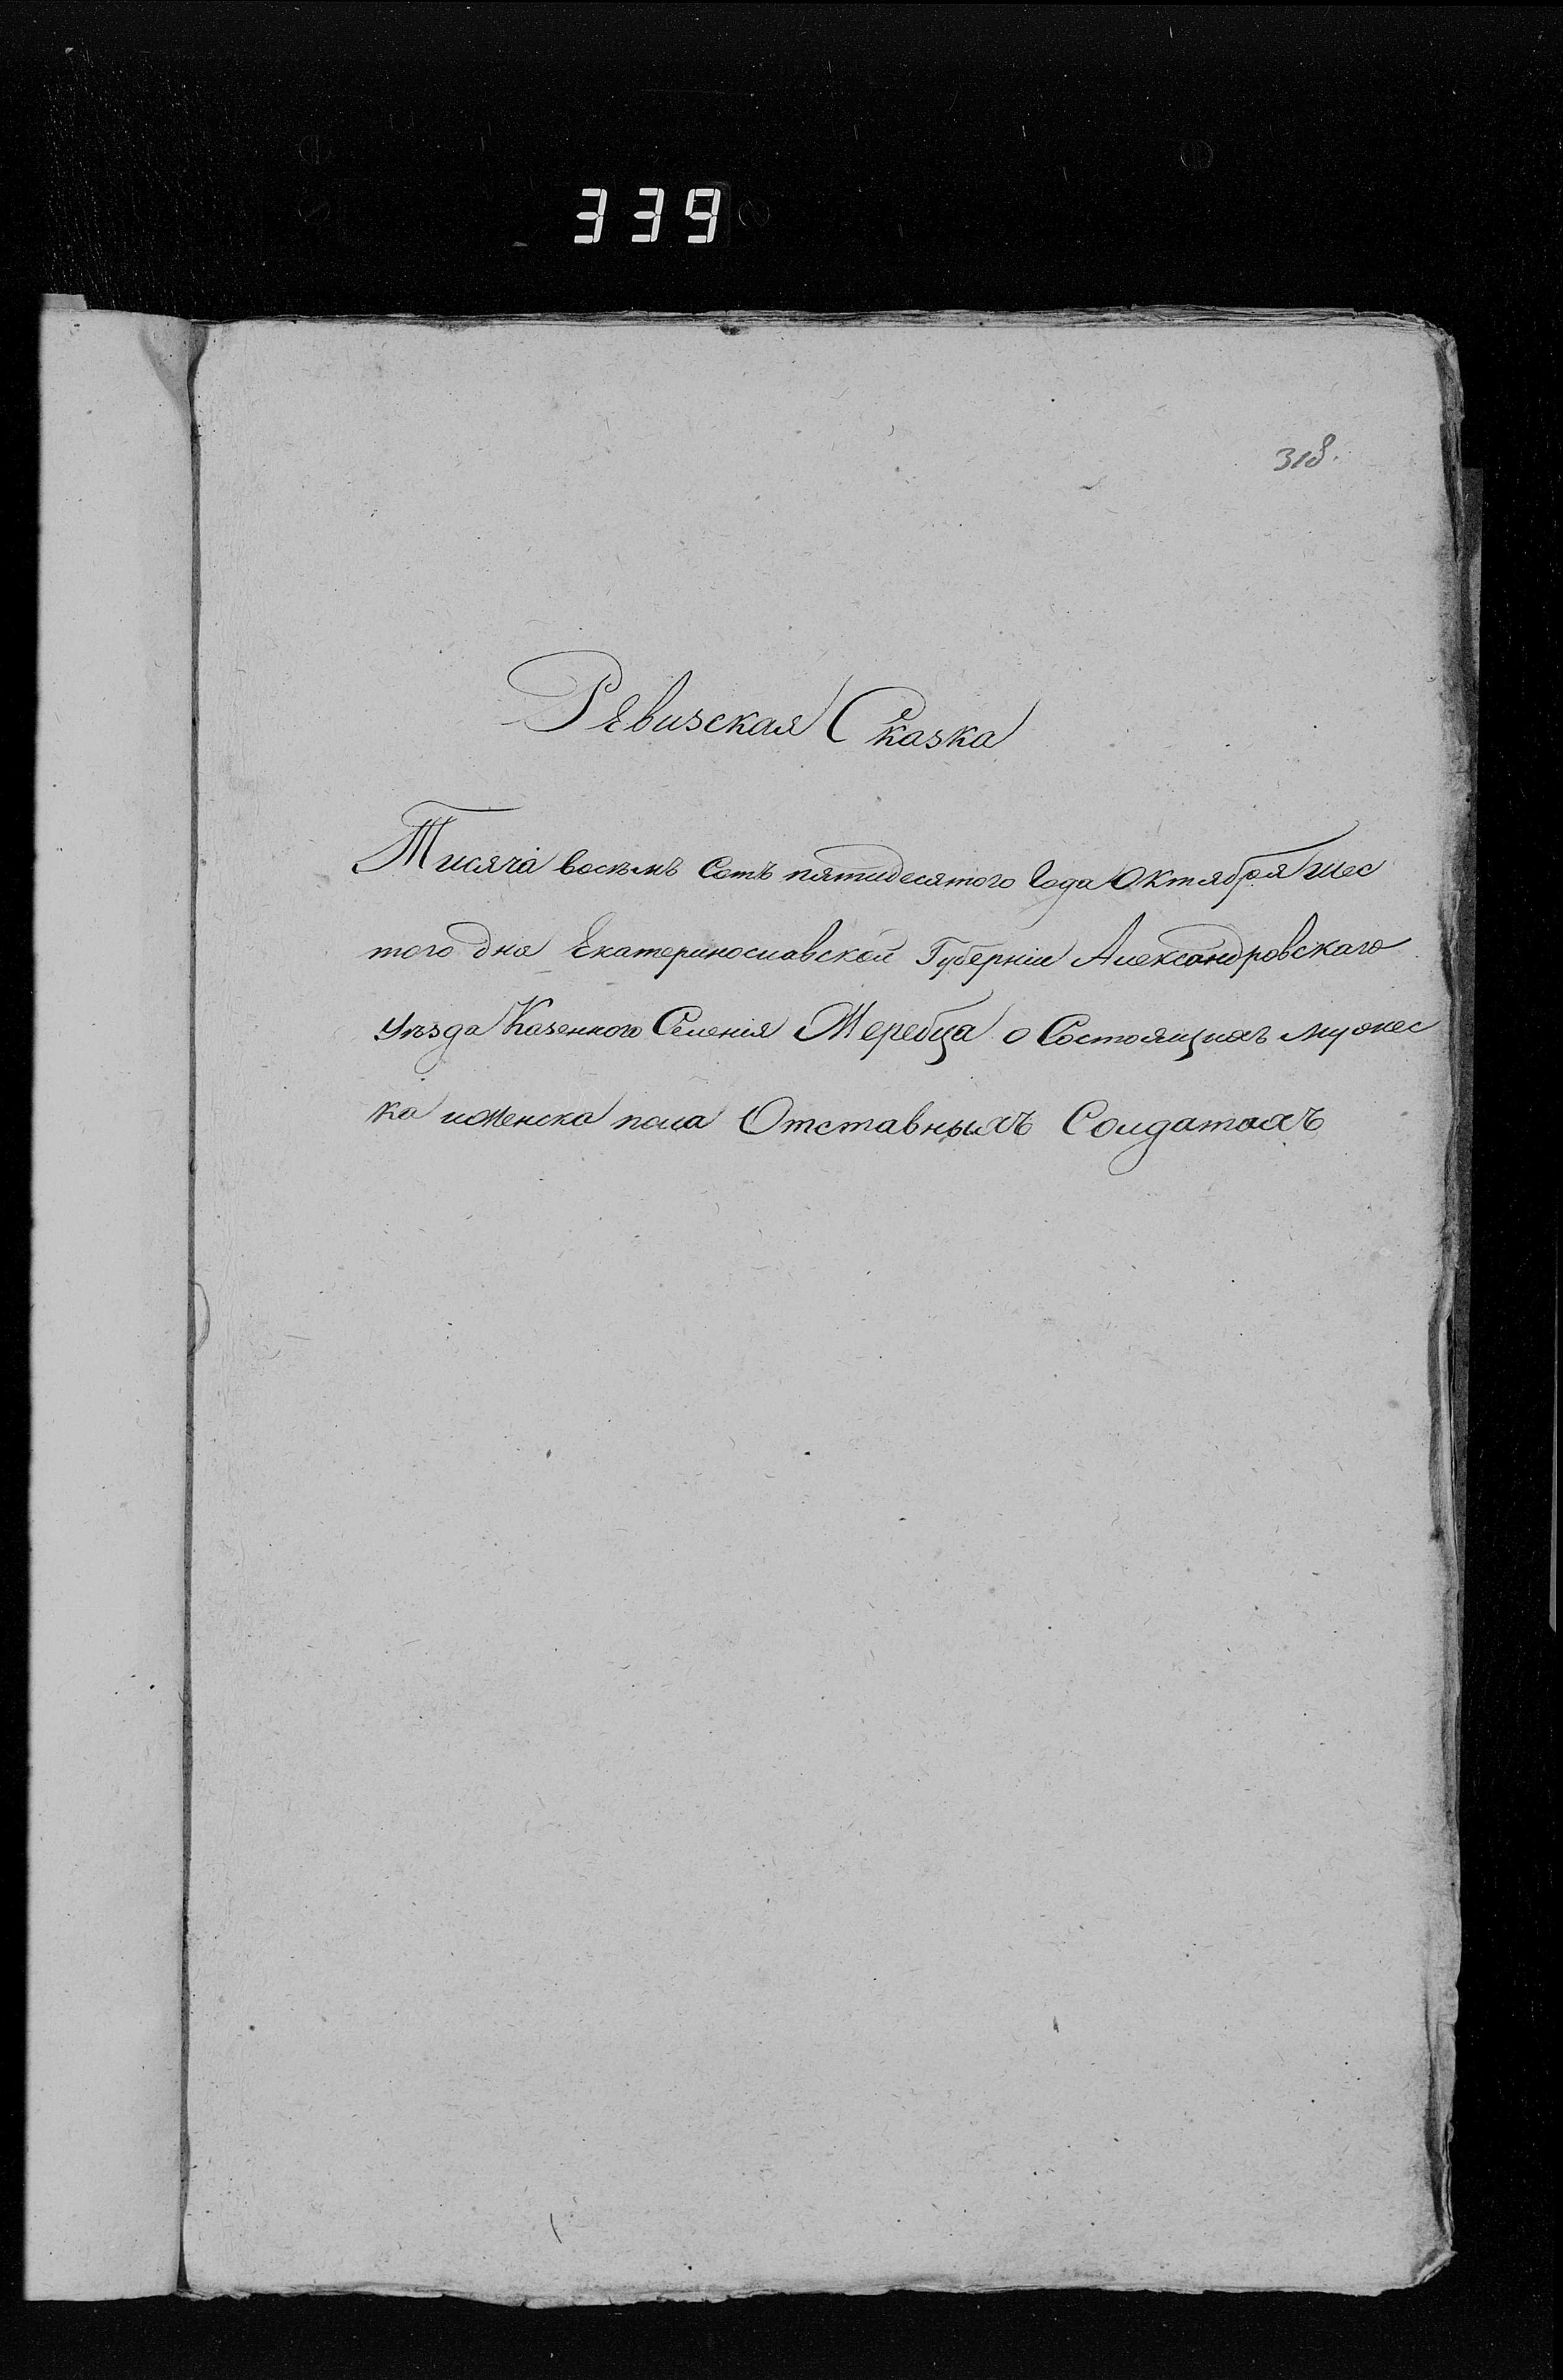 339
318.
Ревизская Сказка
Тисяча восемь Сотъ пятидесятого Года Октября шес
того дня Екатеринославской Губерніи Александровскаго
Уѣзда Казенного Селенія Жеребца о Состоящихъ мужес
ка иженска пола Отставныхъ Солдатахъ